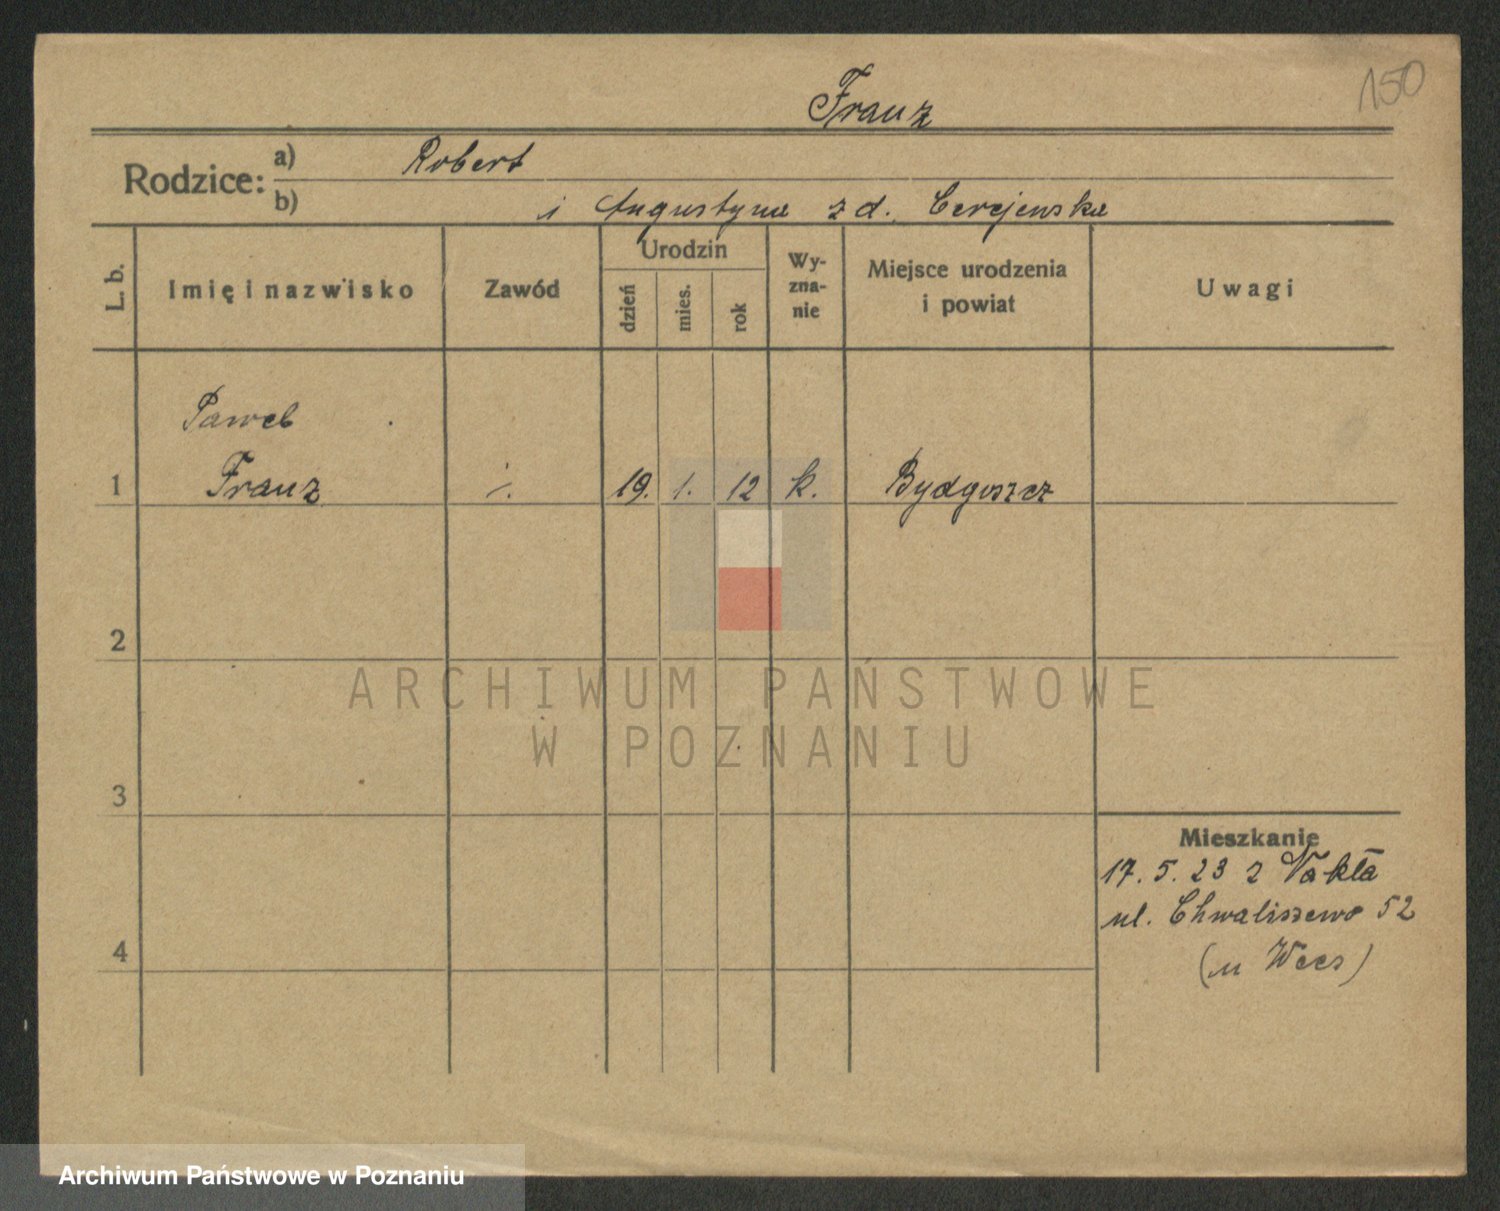 150
Franz
Rodzice: a) Robert
b) i Augustyna z d. Cerejewska
L. b. Imię i nazwisko Zawód Urodzin dzień mies. rok Wy-zna-nie Miejsce urodzenia i powiat Uwagi
Paweł
1 Franz 19. 1. 12 k. Bydgoszcz
2
ARCHIWUM PAŃSTWOWE
W POZNANIU
3
Mieszkanie
17. 5. 23 z Nakła
ul. Chwaliszewo 52
4 (u Wees)
Archiwum Państwowe w Poznaniu